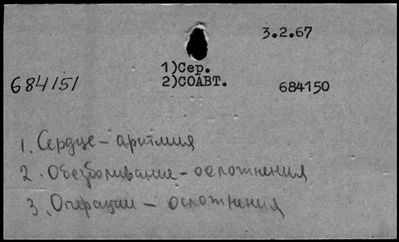 3.2.67
1)Сер.
684151
2)СОАВТ.
684150
1. Сердце – аритмия
2. Обезболивание – осложнения
3. Операции – осложнения